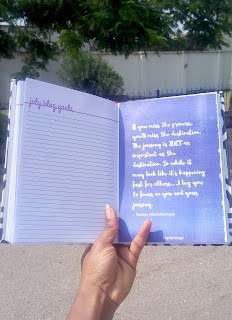 july blog goals
If you miss the process,
you'll miss the destination.
The journey is JUST as
important as the
destination. So while it
may look like it's happening
fast for others...I beg you
to focus on you and your
journey.